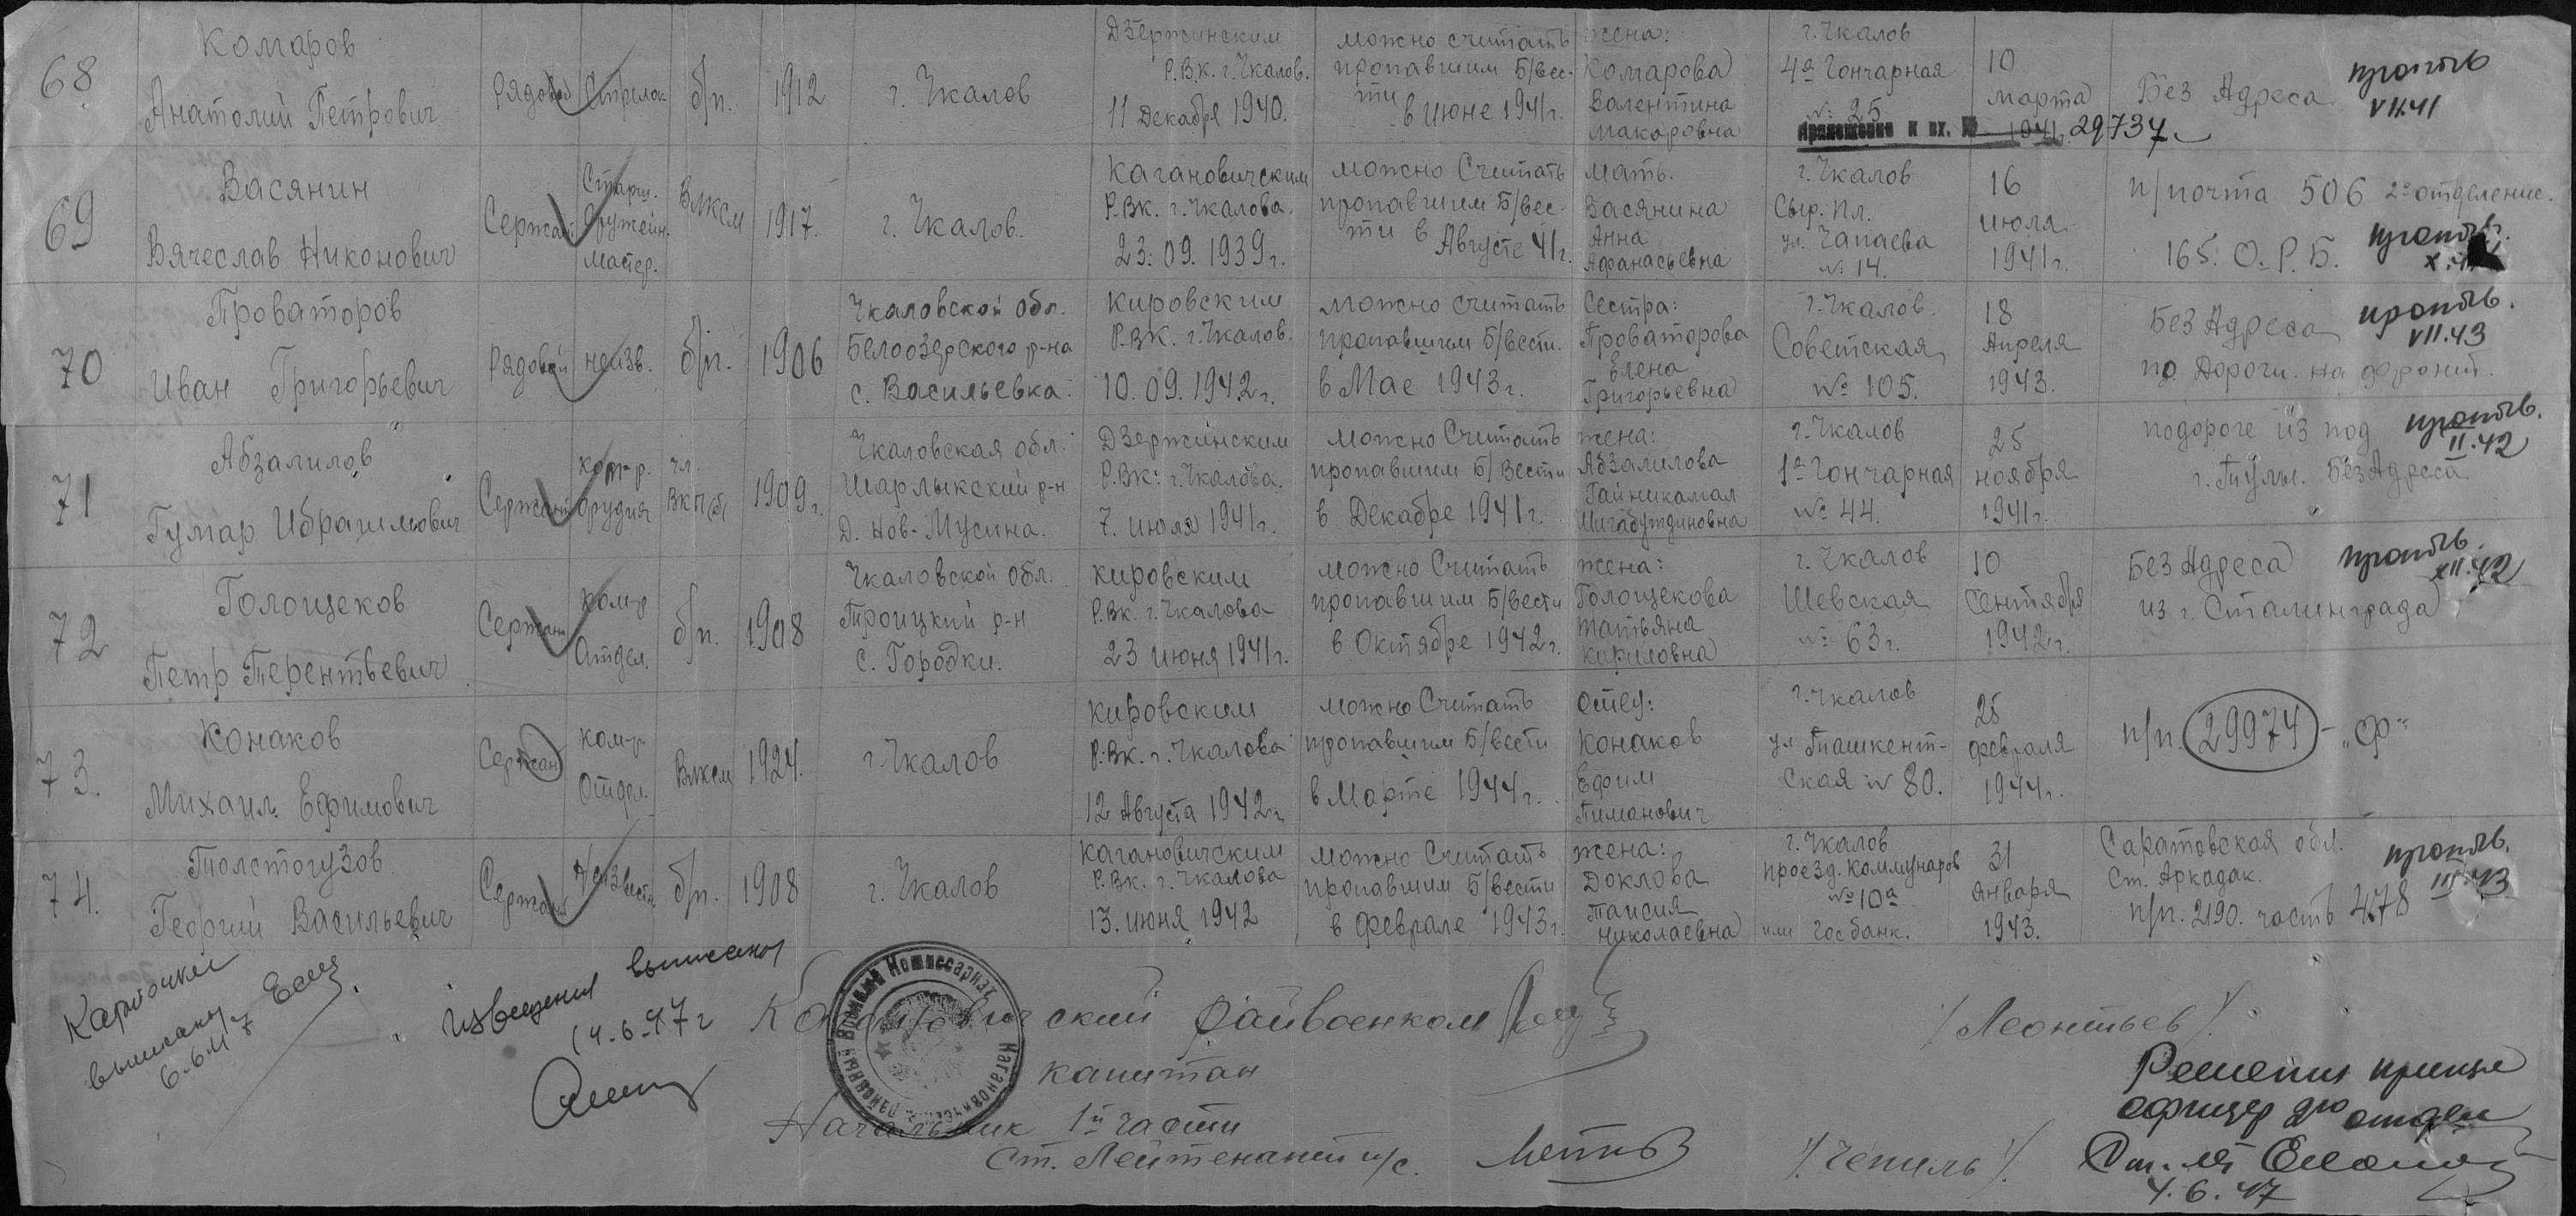 68
Комаров
Анатолий Петрович
Рядовой
Стрелок
б/п.
1912
г. Чкалов
Дзержинским
Р.В.К. г. Чкалов.
11 Декабря 1940.
можно считать
пропавшим б/вес-
ти
в июне 1941г.
жена:
Комарова
Валентина
Макаровна
г. Чкалов
4а Гончарная
№ 25
10
марта
1941
Без Адреса
VII.41
Приложение к вх. № 29737
69
Васянин
Вячеслав Никонович
Сержант
Старш.
Оружейн.
мастер.
Влксм
1917.
г. Чкалов.
Кагановичским
Р.Вк. г. Чкалова.
23.09.1939г.
можно Считать
пропавшим Б/вес-
ти в Августе 41г.
мать.
Васянина
Анна
Афанасьевна
г. Чкалов
Сыр. пл.
ул. Чапаева
№ 14.
16
июля
1941г.
п/почта 506 2е отделение.
165. О.Р.Б.
70
Проваторов
Иван Григорьевич
Рядовой
неизв.
б/п.
1906
Чкаловской обл.
Белоозерского р-на
с. Васильевка.
Кировским
Р.Вк. г. Чкалов.
10.09.1942г.
можно считать
пропавшим Б/вести.
в Мае 1943г.
Сестра:
Проваторова
Елена
Григорьевна
г. Чкалов.
Советская
№ 105.
18
Апреля
1943.
Без Адреса
по Дороги на фронт.
VII.43
71
Абзалилов
Гумар Ибрагимович
Сержант
ком-р.
Орудия
чл.
ВКП(б)
1909г.
Чкаловская обл.
Шарлыкский р-н
Д. Нов-Мусина.
Дзержинским
Р.Вк. г. Чкалова.
7. июля 1941г.
можно Считать
пропавшим Б/Вести
в Декабре 1941г.
жена:
Абзалилова
Гайникамал
г. Чкалов
1а Гончарная
№ 44.
25
ноября
1941г.
подороге из под
г. Тулы. Без Адреса
II.42
72
Голощеков
Петр Терентьевич
Сержант
ком-р
Отдел.
б/п.
1908
Чкаловской обл.
Троицкий р-н
с. Городки.
Кировским
Р.Вк. г. Чкалова
23 июня 1941г.
можно Считать
пропавшим Б/вести
в Октябре 1942г.
жена:
Голощекова
Татьяна
Кириловна
г. Чкалов
Шевская
№ 63г.
10
Сентября
1942г.
Без Адреса
из г. Сталинграда
XII.42
73.
Конаков
Михаил Ефимович
Сержант
ком-р.
Отдел.
Влксм
1924.
г. Чкалов
Кировским
Р.Вк. г. Чкалова
12 Августа 1942г
можно Считать
пропавшим Б/вести
в Марте 1944г.
отец:
Конаков
Ефим
Тиманович
г. Чкалов
ул Ташкент-
ская № 80.
25
февраля
1944г.
п/п. 29974 - „ф"
74.
Толстогузов.
Георгий Васильевич
Сержант
Неизвестн
б/п.
1908
г. Чкалов
Кагановичским
Р.Вк. г. Чкалова
13. июня 1942
можно Считать
пропавшим Б/вести
в феврале 1943г.
жена:
Доклова
Таисия
Николаевна
г. Чкалов
проезд. Коммунаров
№ 10а
или Госбанк.
31
января
1943.
Саратовская обл.
Ст. Аркадак.
п/п. 2190. часть 478
III.43
Карточки
выписаны
извещения выписаны
14.6.47г
Кагановичский райвоенком
капитан
/Леонтьев/
Начальник 1й части
Ст. Лейтенант и/с.
/Чепиль/
Районный Военный Комиссариат
Решения принял
офицер
Ст. л-т
4.6.47